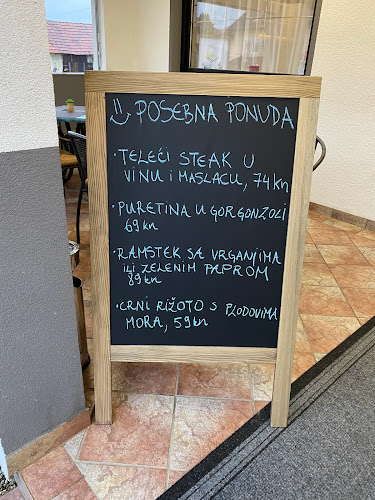 :) POSEBNA PONUDA
· TELEĆI STEAK U
VINU I MASLACU, 74 kn
· PURETINA U GORGONZOLI
69 kn
· RAMSTEK SA VRGANJIMA
ILI ZELENIM PAPROM
89 kn
· CRNI RIŽOTO S PLODOVIMA
MORA, 59 kn